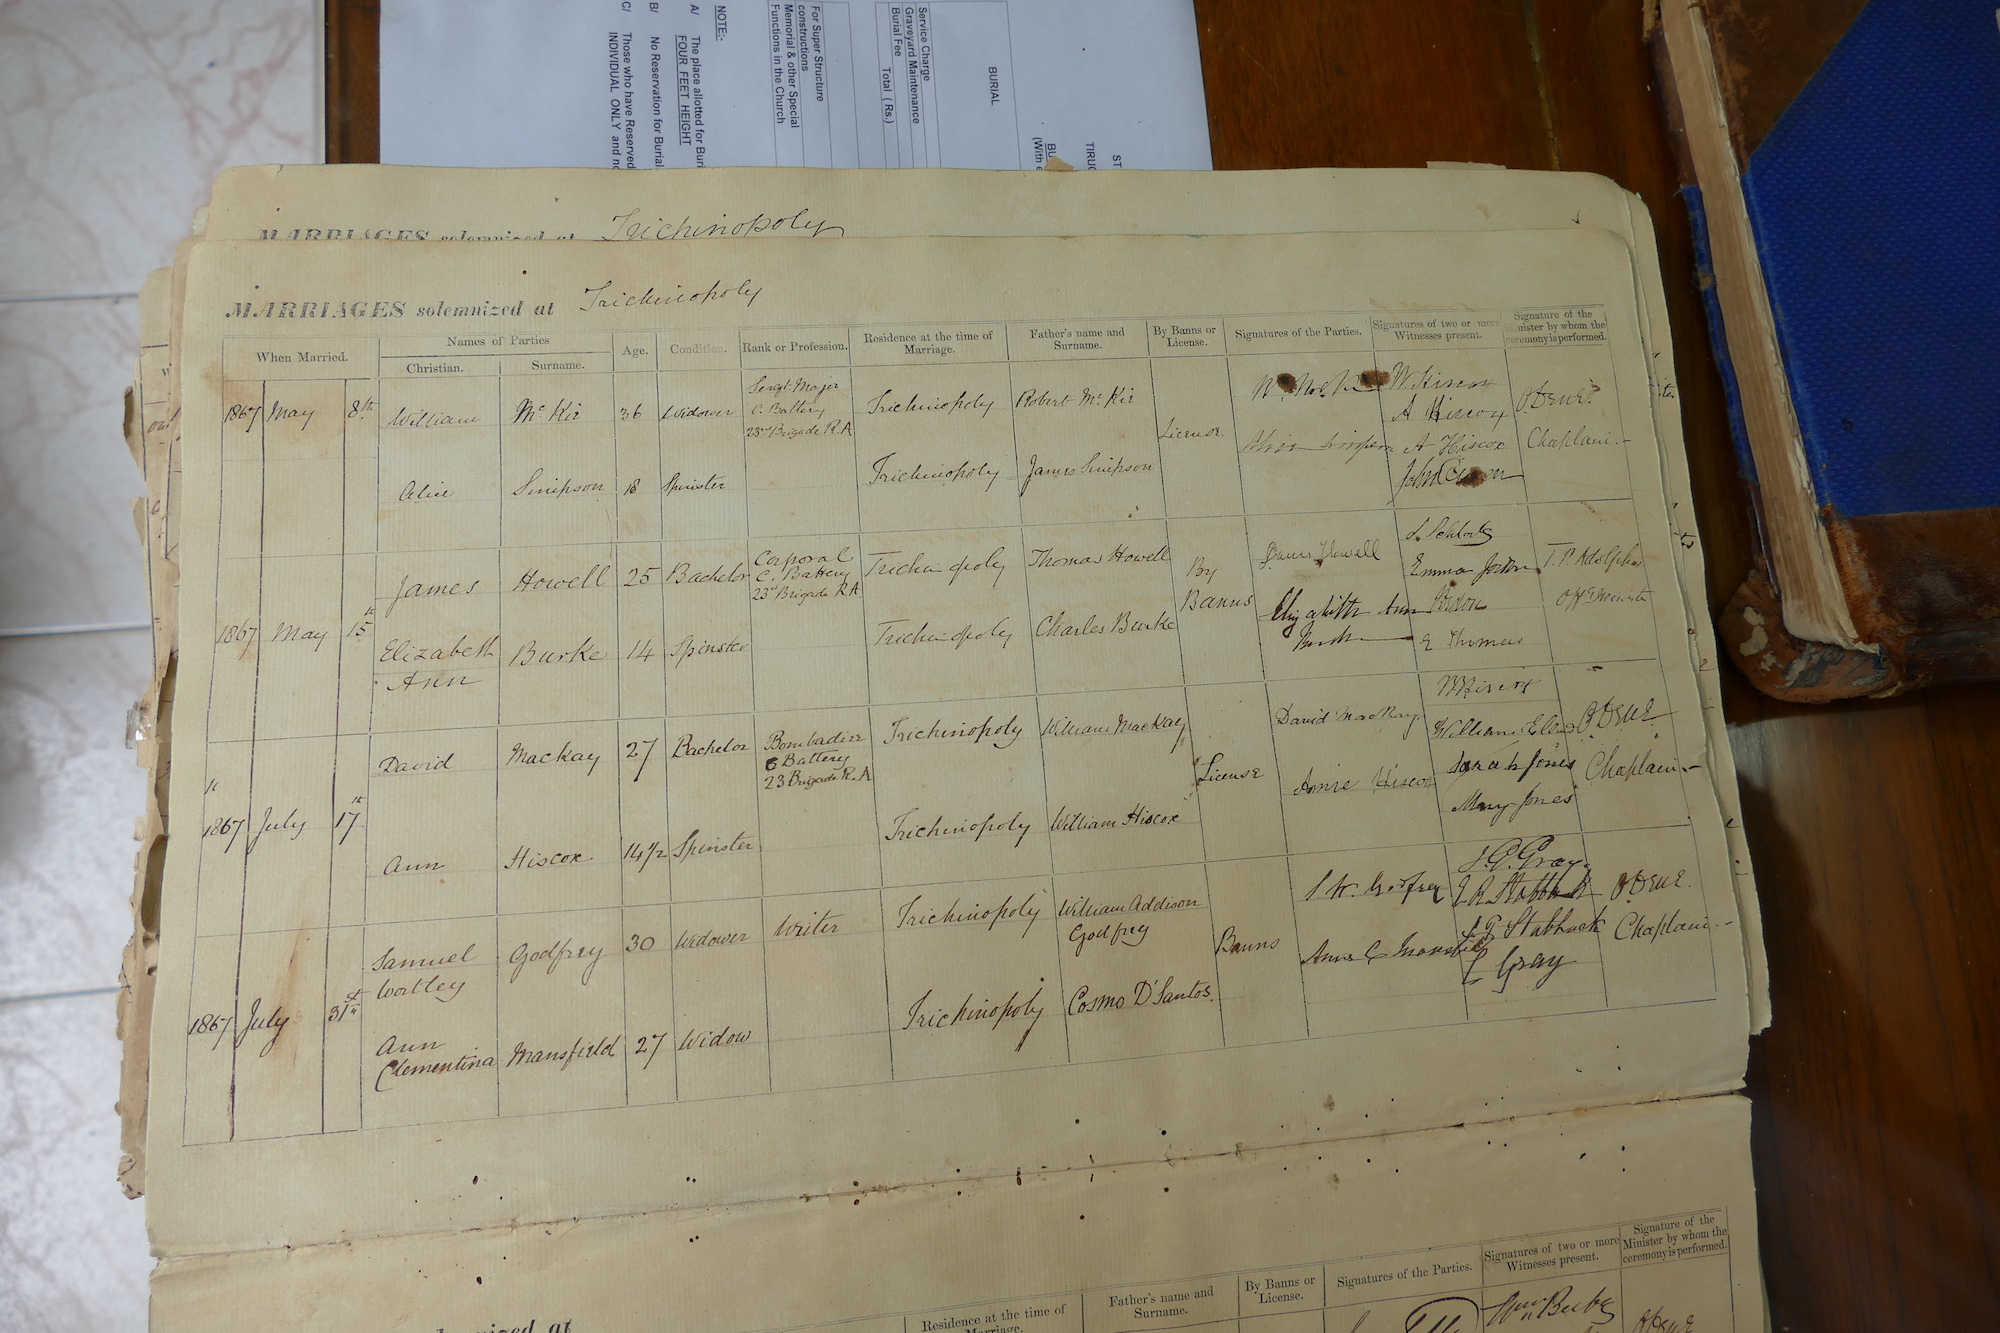 BURIAL
Service Charge
Graveyard Maintenance
Burial Fee Total (Rs.)
For Super Structure
constructions
Memorial & other Special
Functions in the Church
NOTE:-
A/ The place allotted for Buri
FOUR FEET HEIGHT
B/ No Reservation for Burial
C/ Those who have Reserved
INDIVIDUAL ONLY and no
MARRIAGES solemnized at Trichinopoly
MARRIAGES solemnized at Trichinopoly
When Married.
Names of Parties
Christian.
Surname.
Age.
Condition.
Rank or Profession.
Residence at the time of
Marriage.
Father's name and
Surname.
By Banns or
License.
Signatures of the Parties.
Signatures of two or more
Witnesses present.
Signature of the
Minister by whom the
ceremony is performed.
1867 May 8th
William McKir 36 Widower
Sergt. Major
C. Battery
23rd Brigade R.A
Trichinopoly Robert McKir
License
W. Hiscox
A Hiscox
A Hiscox
Chaplain
Alice Simpson 18 Spinster
Trichinopoly James Simpson
1867 May 15th
James Howell 25 Bachelor
Corporal
C. Battery
23d Brigade R.A
Trichinopoly Thomas Howell
By
Banns
James Howell
Elizabeth Ann
Emma Jordon
Jordon
E Thomas
Elizabeth
Ann
Burke 14 Spinster
Trichinopoly Charles Burke
1867 July 17th
David Mackay 27 Bachelor
Bombadier
C Battery
23 Brigade R.A
Trichinopoly William Mackay
License
David MacKay
Annie Hiscox
W Hiscox
William Ellis
Sarah Jones
Mary Jones
Chaplain
Ann Hiscox 14 1/2 Spinster
Trichinopoly William Hiscox
1867 July 31st
Samuel
Wortley
Godfrey 30 Widower Writer
Trichinopoly
William Addison
Godfrey
Banns
S W. Godfrey
Anne C Mansfield
J. G. Gray
E Gray
Chaplain
Ann
Clementina
Mansfield 27 Widow
Trichinopoly Cosmo D'Santos.
Residence at the time of
Marriage.
Father's name and
Surname.
By Banns or
License.
Signatures of the Parties.
Signatures of two or more
Witnesses present.
Signature of the
Minister by whom the
ceremony is performed.